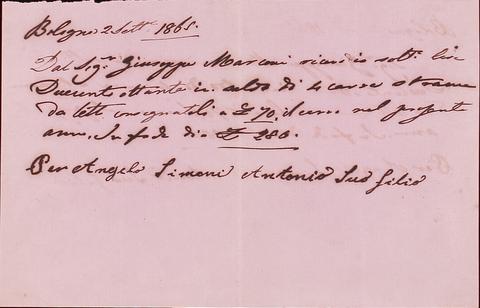 Bologna 2 Sett. 1865.
Dal Sigr. Giuseppe Marconi ricevo io sotto. lire
Duecent ottanta in saldo di 4 carra strame
da letto consegnatoli a £ 70. il carro nel presente
anno. In fede dico £ 280.
Per Angelo Simoni Antonio Suo filio